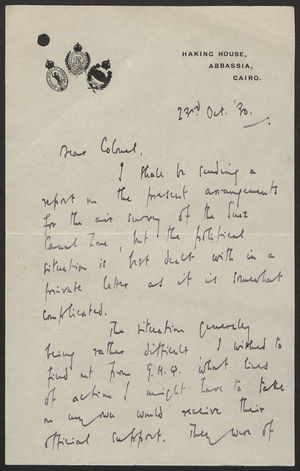 HAKING HOUSE,
ABBASSIA,
CAIRO.
23rd Oct. '30.
Dear Colonel,
I shall be sending a
report on the present arrangements
for the air survey of the Suez
Canal Zone, but the political
situation is best dealt with in a
private letter as it is somewhat
complicated.
The situation generally
being rather difficult I wished to
find out from G.H.Q. what lines
of action I might have to take
on my own would receive their
official support. They were of